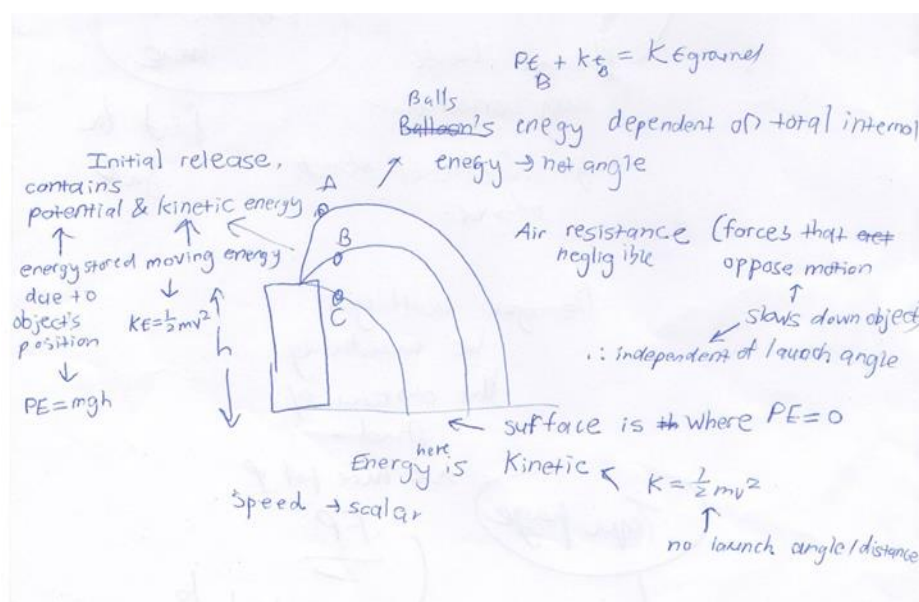 PE_B + KE_B = KE grained
Balls
Balloon's enegy dependent on total internal
enegy → not angle
Initial release,
contains
potential & kinetic energy
energy stored
due to
object's
position
PE=mgh
moving energy
KE=½mv²
A
B
C
h
Air resistance (forces that act
negligible
oppose motion
slows down object
∴ independent of launch angle
← surface is th where PE=0
Energy here is Kinetic
K=½mv²
no launch angle/distance
Speed → scalar